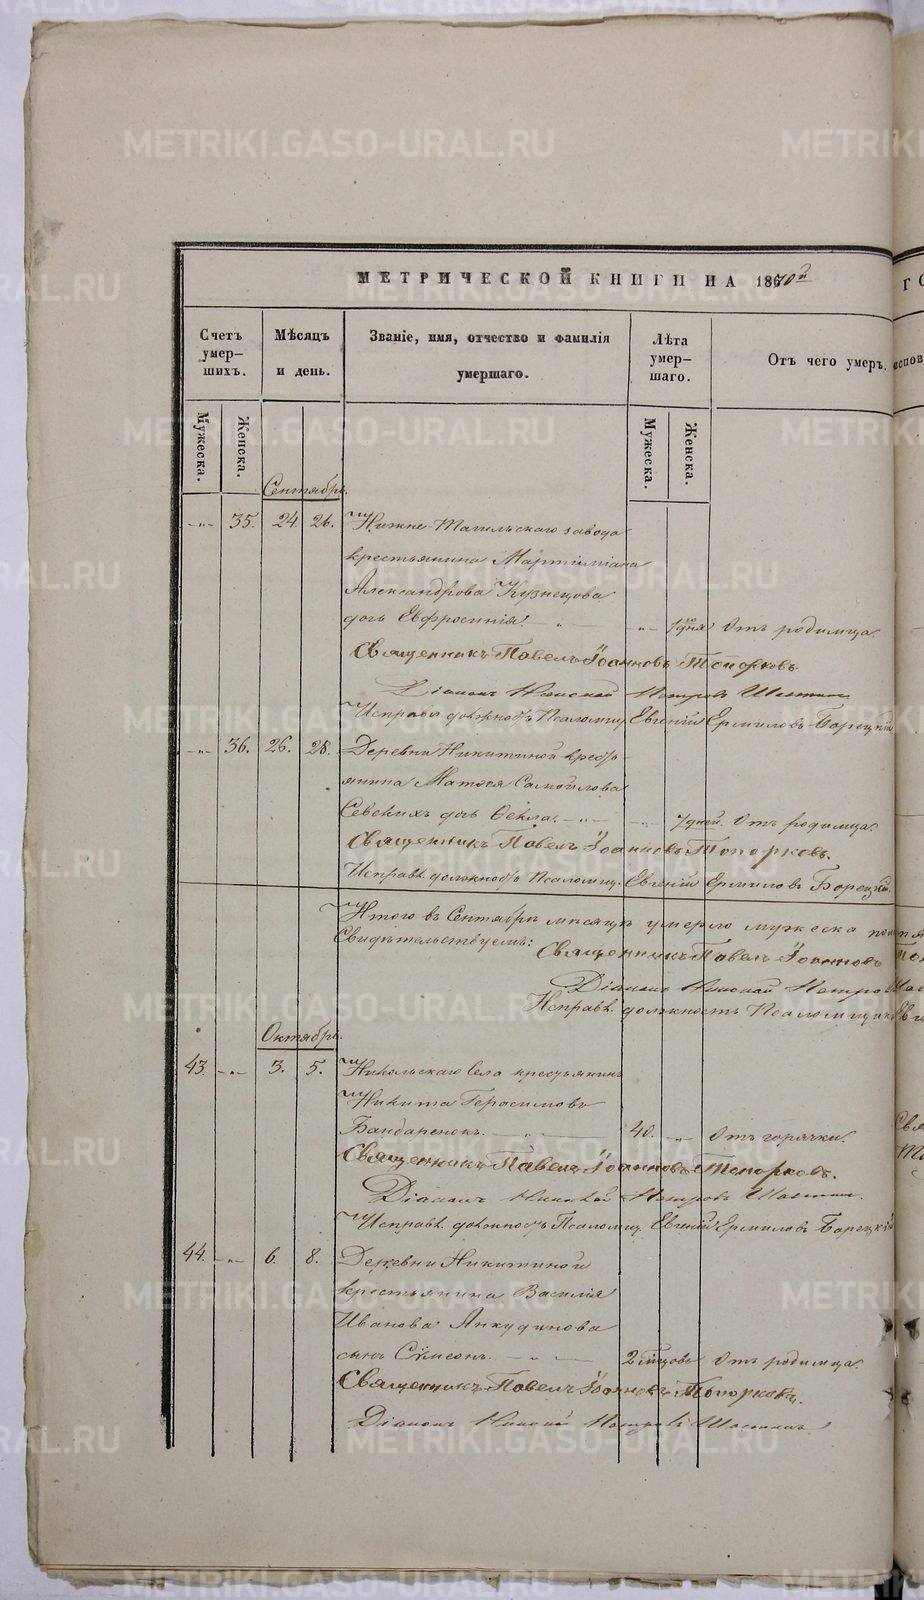 МЕТРИЧЕСКОЙ КНИГИ НА 1870й
Счетъ умер-шихъ.
Мужеска.
Женска.
Мѣсяцъ и день.
Званіе, имя, отчество и фамилія умершаго.
Лѣта умер-шаго.
Мужеска.
Женска.
Отъ чего умеръ.
Сентябрь.
-"- 35. 24 26. Нижне-Тагильскаго завода
крестьянина Мартиміана
Александрова Кузнецова
дочь Евфросинія -"- -"- дня Отъ родимца
Священникъ Павелъ Іоанновъ Топорковъ.
Діаконъ Николай Петровъ
Исправл. должность Псаломщ. Евгеній Ермиловъ Борецкій
-"- 36. 26. 28. Деревни Никитиной кресть-
янина Матѳея Самойлова
Севскихъ дочь Ѳекла. -"- -"- 7 дней. Отъ родимца.
Священникъ Павелъ Іоанновъ Топорковъ.
Исправл. должность Псаломщ. Евгеній Ермиловъ Борецкій
Итого въ Сентябрѣ мѣсяцѣ умерло мужеска пола
Свидѣтельствуемъ: Священникъ Павелъ Іоанновъ
Діаконъ Николай Петровъ
Исправл. должность Псаломщика
Октябрь.
43. -"- 3. 5. Никольскаго Села крестьянинъ
Никита Герасимовъ
Бандаренокъ. -"- 40. -"- Отъ горячки.
Священникъ Павелъ Іоанновъ Топорковъ.
Діаконъ Николай Петровъ
Исправл. должность Псаломщ. Евгеній Ермиловъ Борецкій
44. -"- 6. 8. Деревни Никитиной
крестьянина Василія
Иванова Анкудинова
сынъ Сѵмеонъ. -"- 2 мѣсяцовъ Отъ родимца.
Священникъ Павелъ Іоанновъ Топорковъ.
Діаконъ Николай Петровъ
METRIKI.GASO-URAL.RU